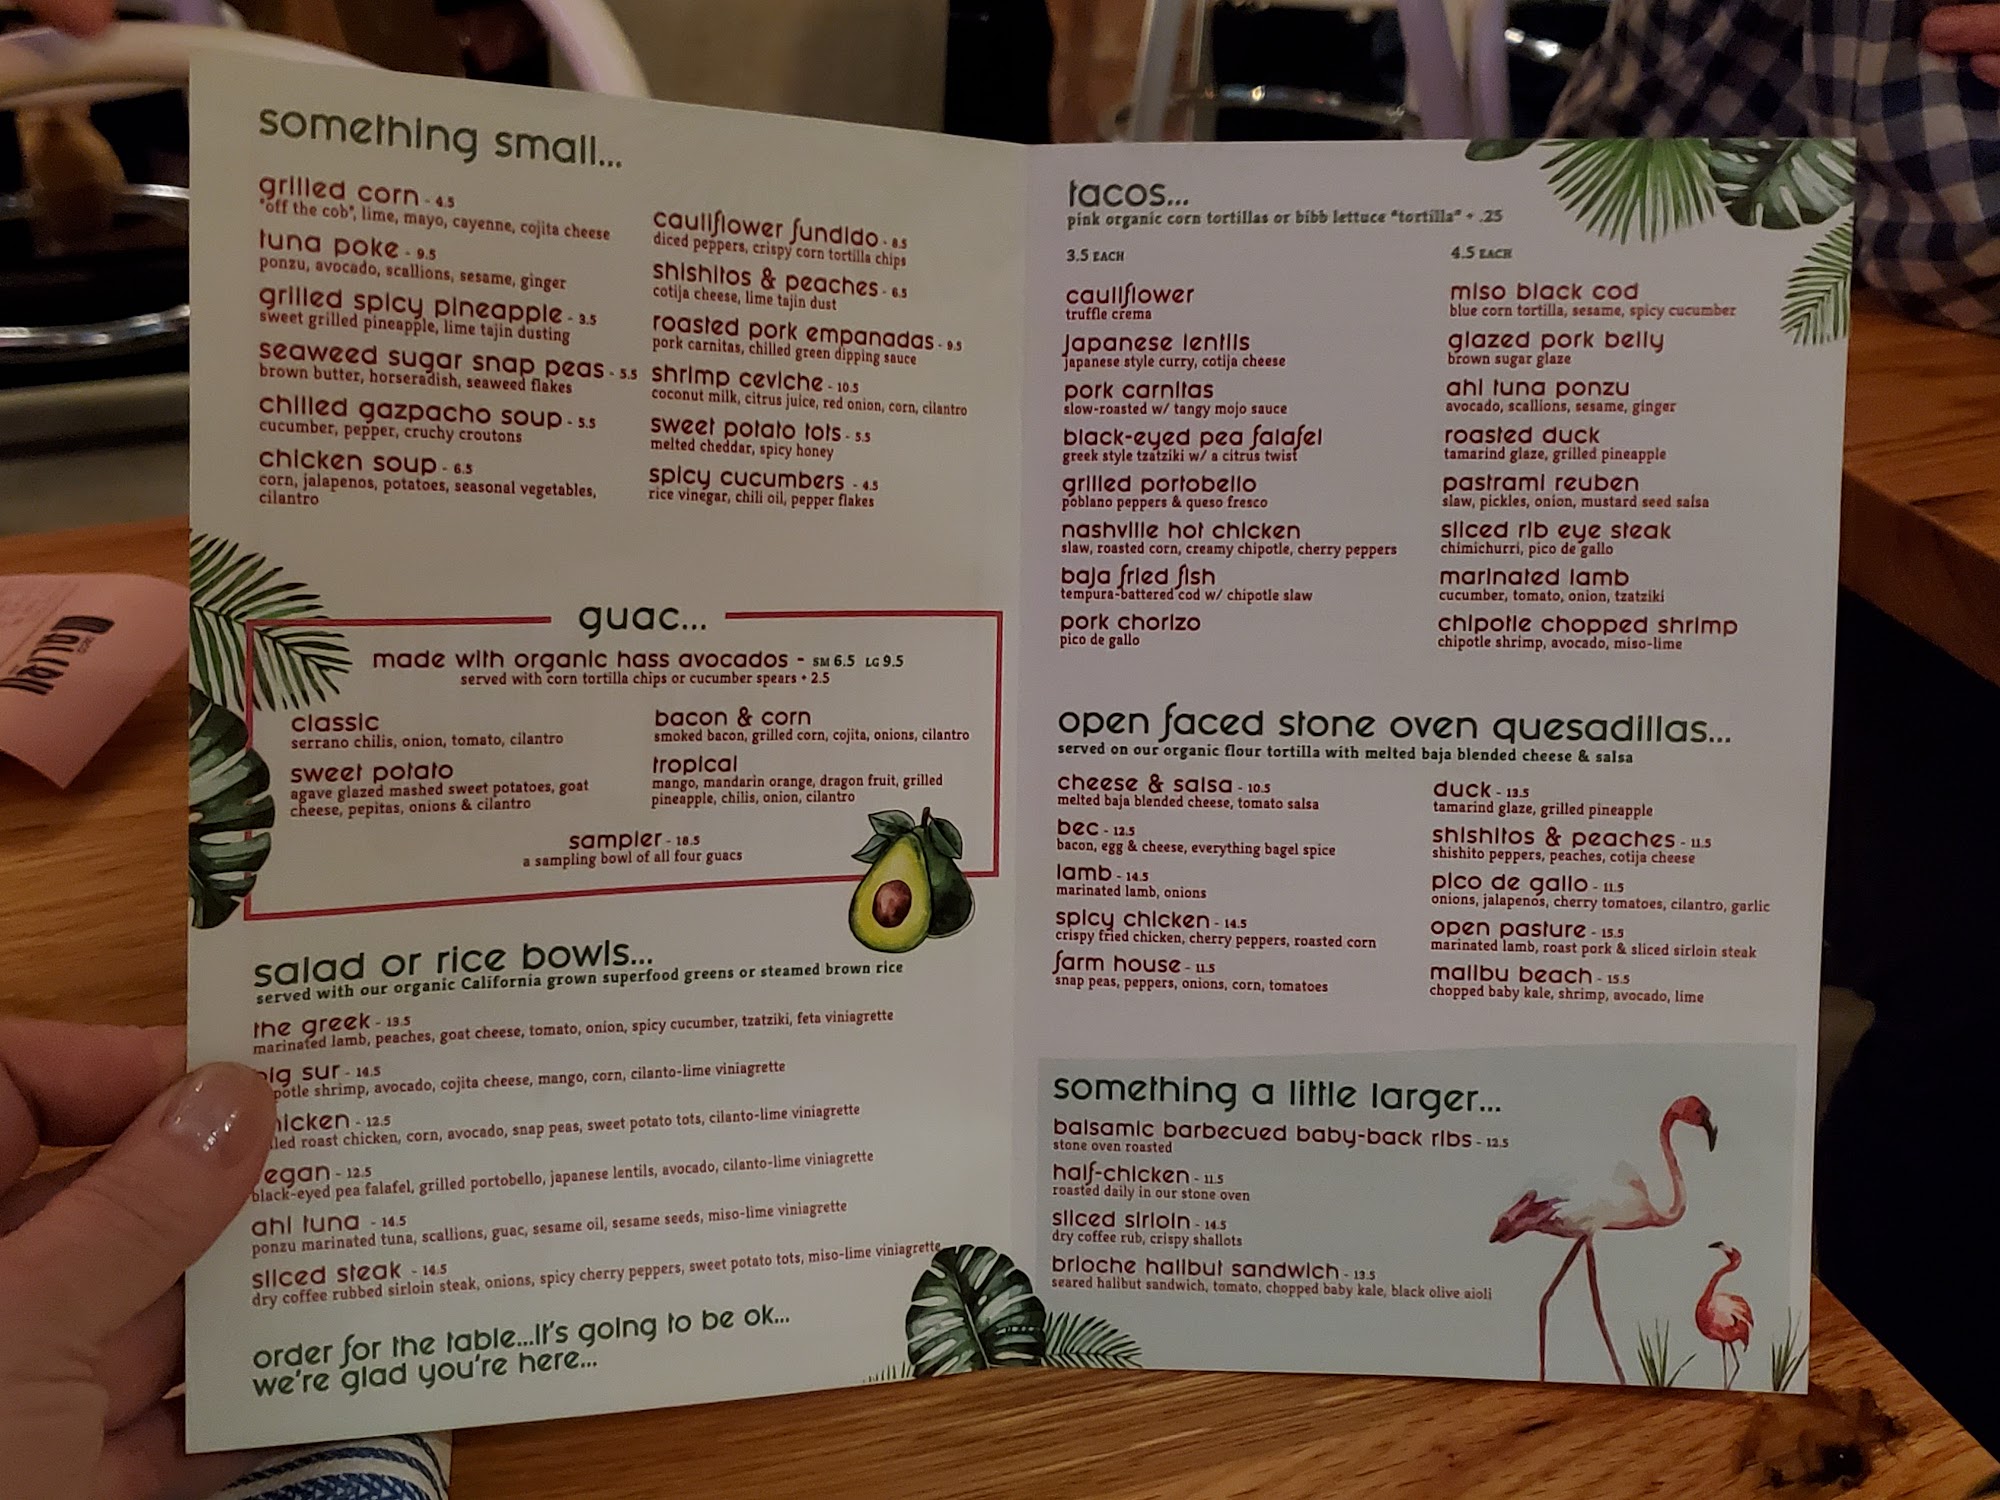 something small...
grilled corn - 4.5
"off the cob", lime, mayo, cayenne, cojita cheese
tuna poke - 9.5
ponzu, avocado, scallions, sesame, ginger
grilled spicy pineapple - 3.5
sweet grilled pineapple, lime tajin dusting
seaweed sugar snap peas - 5.5
brown butter, horseradish, seaweed flakes
chilled gazpacho soup - 5.5
cucumber, pepper, cruchy croutons
chicken soup - 6.5
corn, jalapenos, potatoes, seasonal vegetables,
cilantro
cauliflower fundido - 8.5
diced peppers, crispy corn tortilla chips
shishitos & peaches - 6.5
cotija cheese, lime tajin dust
roasted pork empanadas - 9.5
pork carnitas, chilled green dipping sauce
shrimp ceviche - 10.5
coconut milk, citrus juice, red onion, corn, cilantro
sweet potato tots - 5.5
melted cheddar, spicy honey
spicy cucumbers - 4.5
rice vinegar, chili oil, pepper flakes
guac...
made with organic hass avocados - SM 6.5 LG 9.5
served with corn tortilla chips or cucumber spears + 2.5
classic
serrano chilis, onion, tomato, cilantro
sweet potato
agave glazed mashed sweet potatoes, goat
cheese, pepitas, onions & cilantro
bacon & corn
smoked bacon, grilled corn, cojita, onions, cilantro
tropical
mango, mandarin orange, dragon fruit, grilled
pineapple, chilis, onion, cilantro
sampler - 18.5
a sampling bowl of all four guacs
salad or rice bowls...
served with our organic California grown superfood greens or steamed brown rice
the greek - 13.5
marinated lamb, peaches, goat cheese, tomato, onion, spicy cucumber, tzatziki, feta viniagrette
big sur - 14.5
potle shrimp, avocado, cojita cheese, mango, corn, cilanto-lime viniagrette
hicken - 12.5
led roast chicken, corn, avocado, snap peas, sweet potato tots, cilanto-lime viniagrette
egan - 12.5
black-eyed pea falafel, grilled portobello, japanese lentils, avocado, cilanto-lime viniagrette
ahi tuna - 14.5
ponzu marinated tuna, scallions, guac, sesame oil, sesame seeds, miso-lime viniagrette
sliced steak - 14.5
dry coffee rubbed sirloin steak, onions, spicy cherry peppers, sweet potato tots, miso-lime viniagrette
order for the table...it's going to be ok...
we're glad you're here...
tacos...
pink organic corn tortillas or bibb lettuce "tortilla" + .25
3.5 EACH
cauliflower
truffle crema
japanese lentils
japanese style curry, cotija cheese
pork carnitas
slow-roasted w/ tangy mojo sauce
black-eyed pea falafel
greek style tzatziki w/ a citrus twist
grilled portobello
poblano peppers & queso fresco
nashville hot chicken
slaw, roasted corn, creamy chipotle, cherry peppers
baja fried fish
tempura-battered cod w/ chipotle slaw
pork chorizo
pico de gallo
4.5 EACH
miso black cod
blue corn tortilla, sesame, spicy cucumber
glazed pork belly
brown sugar glaze
ahi tuna ponzu
avocado, scallions, sesame, ginger
roasted duck
tamarind glaze, grilled pineapple
pastrami reuben
slaw, pickles, onion, mustard seed salsa
sliced rib eye steak
chimichurri, pico de gallo
marinated lamb
cucumber, tomato, onion, tzatziki
chipotle chopped shrimp
chipotle shrimp, avocado, miso-lime
open faced stone oven quesadillas...
served on our organic flour tortilla with melted baja blended cheese & salsa
cheese & salsa - 10.5
melted baja blended cheese, tomato salsa
bec - 12.5
bacon, egg & cheese, everything bagel spice
lamb - 14.5
marinated lamb, onions
spicy chicken - 14.5
crispy fried chicken, cherry peppers, roasted corn
farm house - 11.5
snap peas, peppers, onions, corn, tomatoes
duck - 13.5
tamarind glaze, grilled pineapple
shishitos & peaches - 11.5
shishito peppers, peaches, cotija cheese
pico de gallo - 11.5
onions, jalapenos, cherry tomatoes, cilantro, garlic
open pasture - 15.5
marinated lamb, roast pork & sliced sirloin steak
malibu beach - 15.5
chopped baby kale, shrimp, avocado, lime
something a little larger...
balsamic barbecued baby-back ribs - 12.5
stone oven roasted
half-chicken - 11.5
roasted daily in our stone oven
sliced sirloin - 14.5
dry coffee rub, crispy shallots
brioche halibut sandwich - 13.5
seared halibut sandwich, tomato, chopped baby kale, black olive aioli